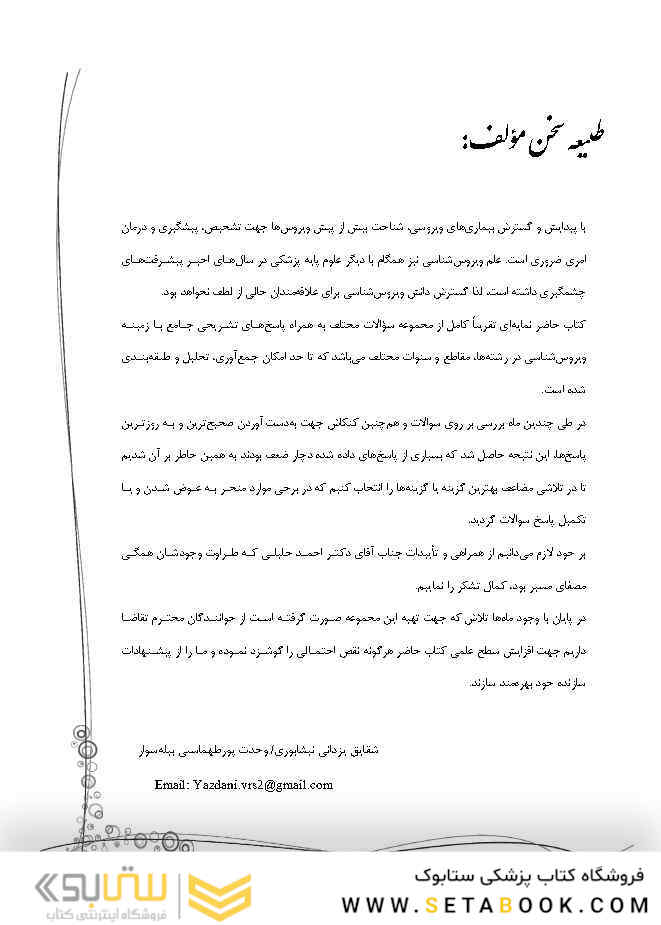 طلیعه سخن مؤلف:
با پیدایش و گسترش بیماری‌های ویروسی، شناخت بیش از پیش ویروس‌ها جهت تشخیص، پیشگیری و درمان
امری ضروری است. علم ویروس‌شناسی نیز همگام با دیگر علوم پایه پزشکی در سال‌های اخیر پیشرفت‌های
چشمگیری داشته است، لذا گسترش دانش ویروس‌شناسی برای علاقه‌مندان خالی از لطف نخواهد بود.
کتاب حاضر نمایه‌ای تقریباً کامل از مجموعه سؤالات مختلف به همراه پاسخ‌های تشریحی جامع با زمینه
ویروس‌شناسی در رشته‌ها، مقاطع و سنوات مختلف می‌باشد که تا حد امکان جمع‌آوری، تحلیل و طبقه‌بندی
شده است.
در طی چندین ماه بررسی بر روی سوالات و هم‌چنین کنکاش جهت به‌دست آوردن صحیح‌ترین و به روزترین
پاسخ‌ها، این نتیجه حاصل شد که بسیاری از پاسخ‌های داده شده دچار ضعف بودند به همین خاطر بر آن شدیم
تا در تلاشی مضاعف بهترین گزینه یا گزینه‌ها را انتخاب کنیم که در برخی موارد منجر به عوض شدن و یا
تکمیل پاسخ سوالات گردید.
بر خود لازم می‌دانیم از همراهی و تأییدات جناب آقای دکتر احمد جلیلی که طراوت وجودشان همگی
مصفای مسیر بود، کمال تشکر را نماییم.
در پایان با وجود ماه‌ها تلاش که جهت تهیه این مجموعه صورت گرفته است از خوانندگان محترم تقاضا
داریم جهت افزایش سطح علمی کتاب حاضر هرگونه نقص احتمالی را گوشزد نموده و ما را از پیشنهادات
سازنده خود بهره‌مند سازند.
شقایق یزدانی نیشابوری/ وحدت پورطهماسبی بیله‌سوار
Email: Yazdani.vrs2@gmail.com
فروشگاه کتاب پزشکی ستابوک
WWW.SETABOOK.COM
ستابوک
فروشگاه اینترنتی کتاب